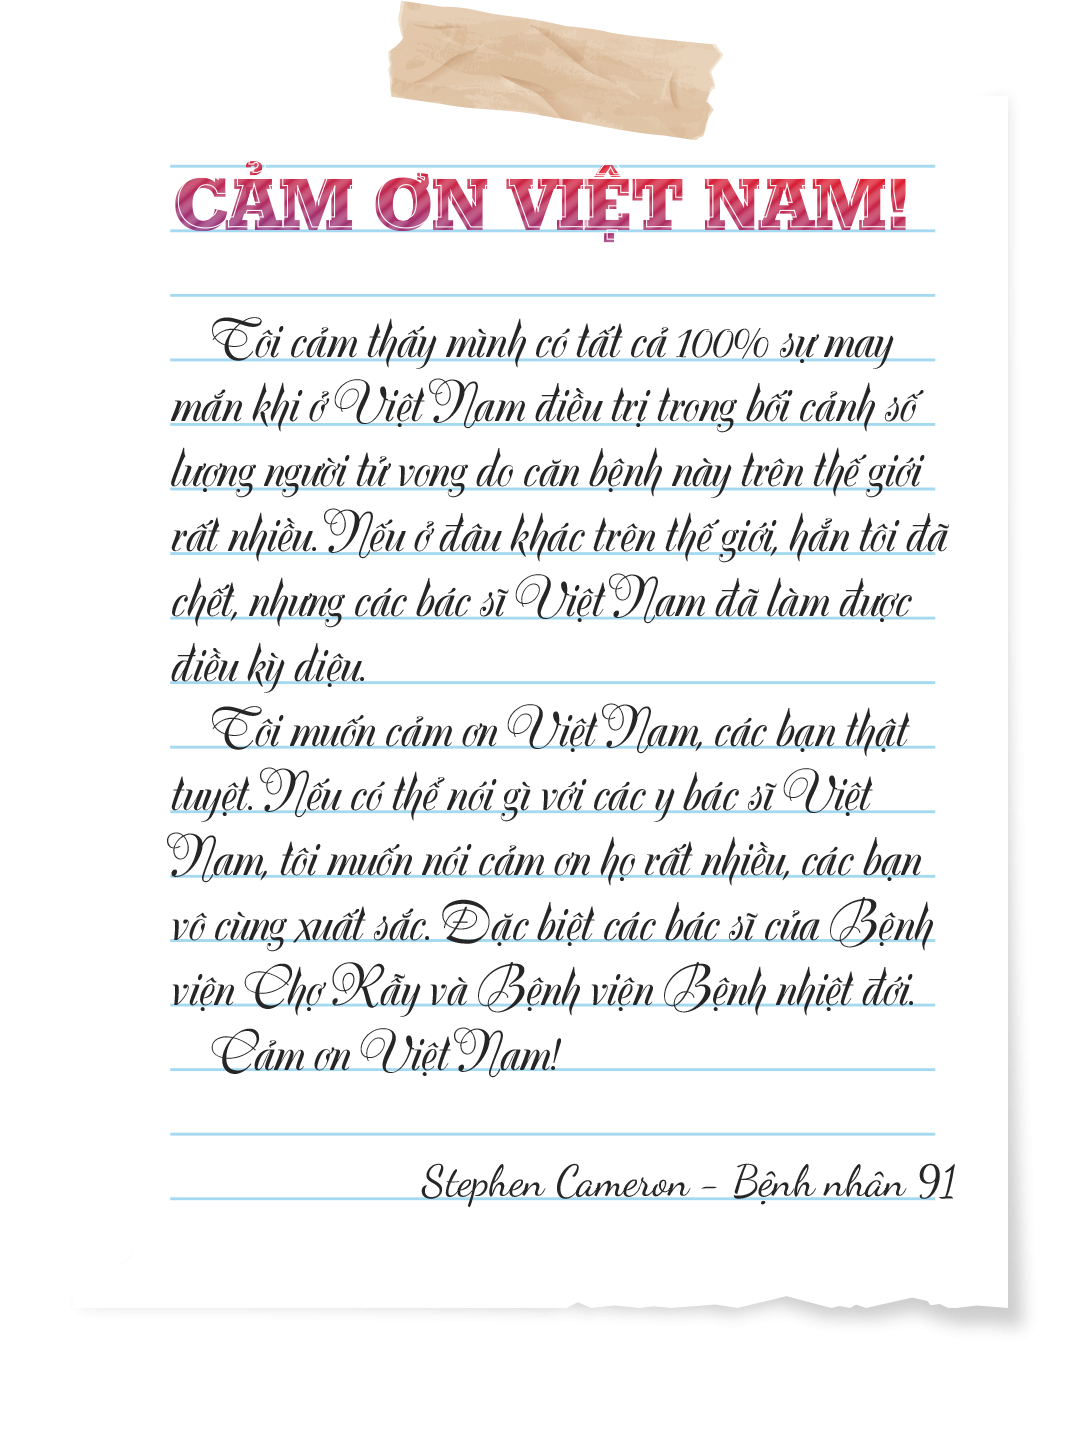 CẢM ƠN VIỆT NAM!
Tôi cảm thấy mình có tất cả 100% sự may
mắn khi ở Việt Nam điều trị trong bối cảnh số
lượng người tử vong do căn bệnh này trên thế giới
rất nhiều. Nếu ở đâu khác trên thế giới, hẳn tôi đã
chết, nhưng các bác sĩ Việt Nam đã làm được
điều kỳ diệu.
Tôi muốn cảm ơn Việt Nam, các bạn thật
tuyệt. Nếu có thể nói gì với các y bác sĩ Việt
Nam, tôi muốn nói cảm ơn họ rất nhiều, các bạn
vô cùng xuất sắc. Đặc biệt các bác sĩ của Bệnh
viện Chợ Rẫy và Bệnh viện Bệnh nhiệt đới.
Cảm ơn Việt Nam!
Stephen Cameron - Bệnh nhân 91